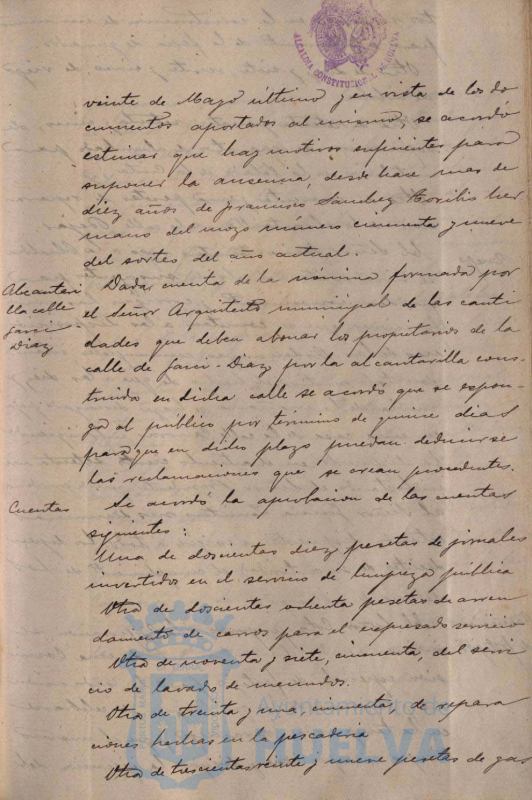 ALCALDIA CONSTITUCIONAL DE HUELVA
veinte de Mayo último y en vista de los do
cumentos aportados al mismo, se acordó
estimar que hay motivos suficientes para
suponer la ausencia, desde hace mas de
diez años de Francisco Sanchez her
mano del mozo número cincuenta y nueve
del sorteo del año actual.
Alcantari
lla calle
Garci-
Diaz
Dada cuenta de la nómina formada por
el Señor Arquitecto municipal de las canti
dades que deben abonar los propietarios de la
calle de Garci-Diaz por la alcantarilla cons-
truida en dicha calle se acordó que se expon-
ga al público por término de quince dias
para que en dicho plazo puedan deducirse
las reclamaciones que se crean procedentes.
Cuentas
Se acordó la aprobacion de las cuentas
siguientes:
Una de doscientas diez pesetas de jornales
invertidos en el servicio de limpieza pública
Otra de doscientas ochenta pesetas de arren
damiento de carros para el expresado servicio
Otra de noventa y siete, cincuenta, del servi
cio de lavado de menudos.
Otra de treinta y una, cincuenta, de repara
ciones hechas en la pescaderia
Otra de trescientas veinte y nueve pesetas de gas
Ayuntamiento de
HUELVA